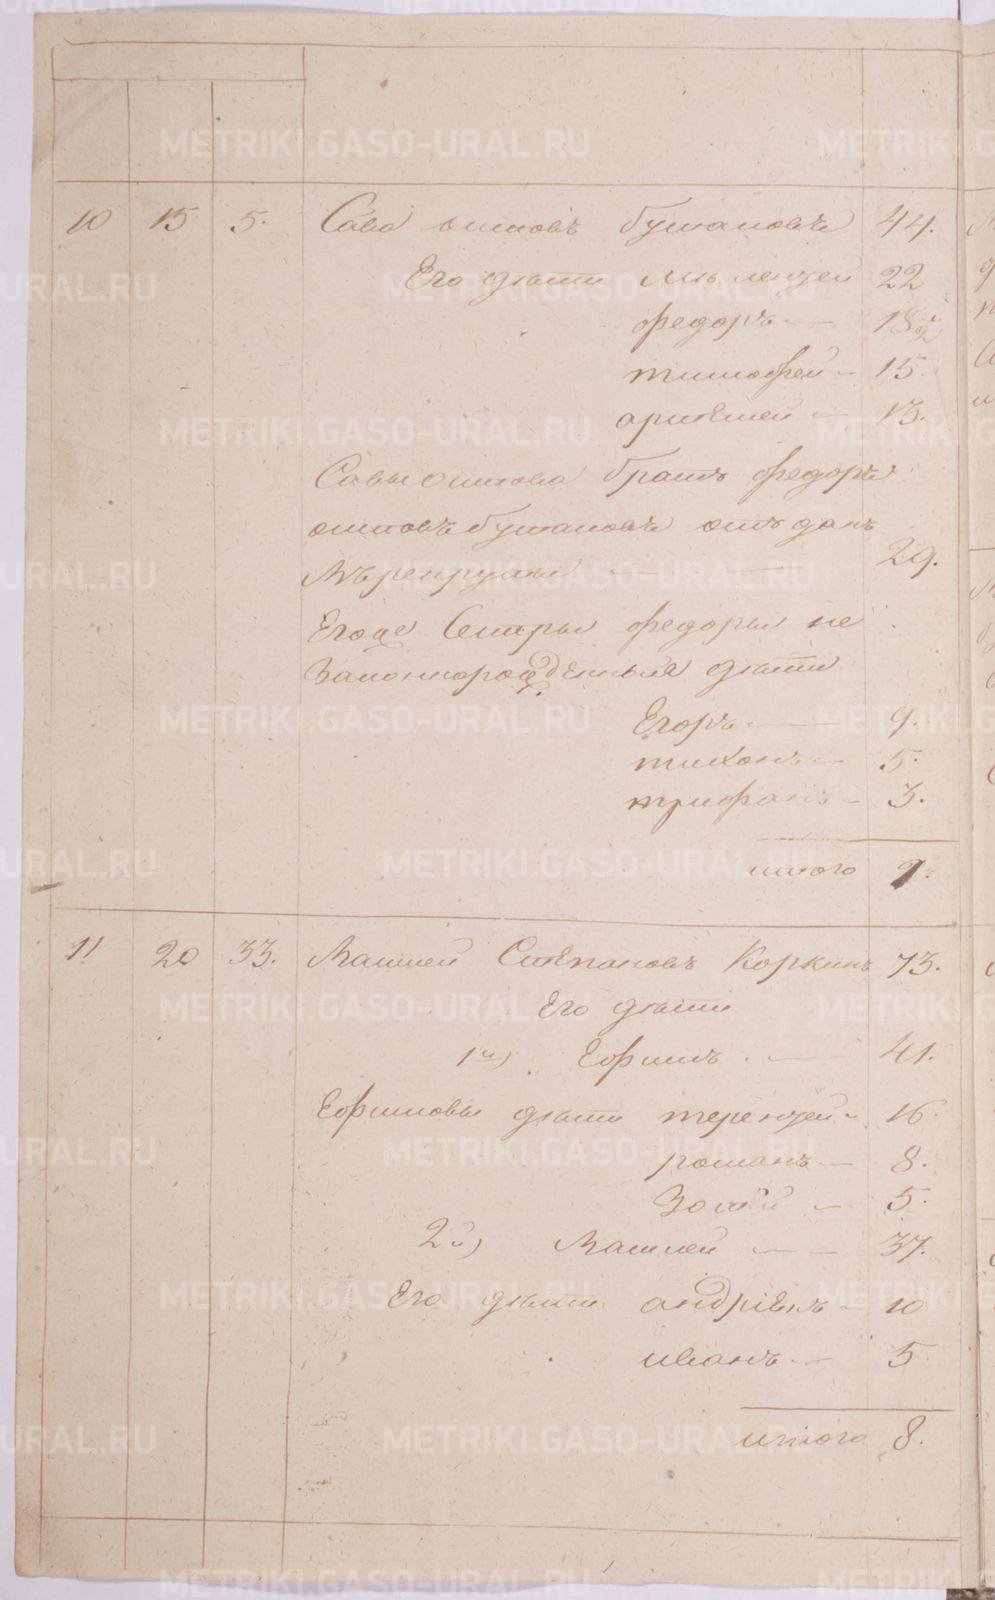 10 15 5. Сава осиповъ бутаковъ 44.
Его дѣти 22
федоръ — 18 ½
тимофей — 15.
артемей — 13.
Савы осипова братъ федоръ
осиповъ бутаковъ отъ данъ
Въ рекруты — 29.
Егоже Сестры федоры не
Законнорожденные дѣти
Егоръ — 9.
тихонъ — 5.
трифанъ — 3.
итого 9.
11 20 33. Матвей Степановъ Коркинъ 73.
Его дѣти
1й) Ефимъ — 41.
Ефимовы дѣти терентей 16.
романъ — 8.
5.
2й) 37.
Его дѣти андріянъ — 10
иванъ — 5
итого 8.
METRIKI.GASO-URAL.RU